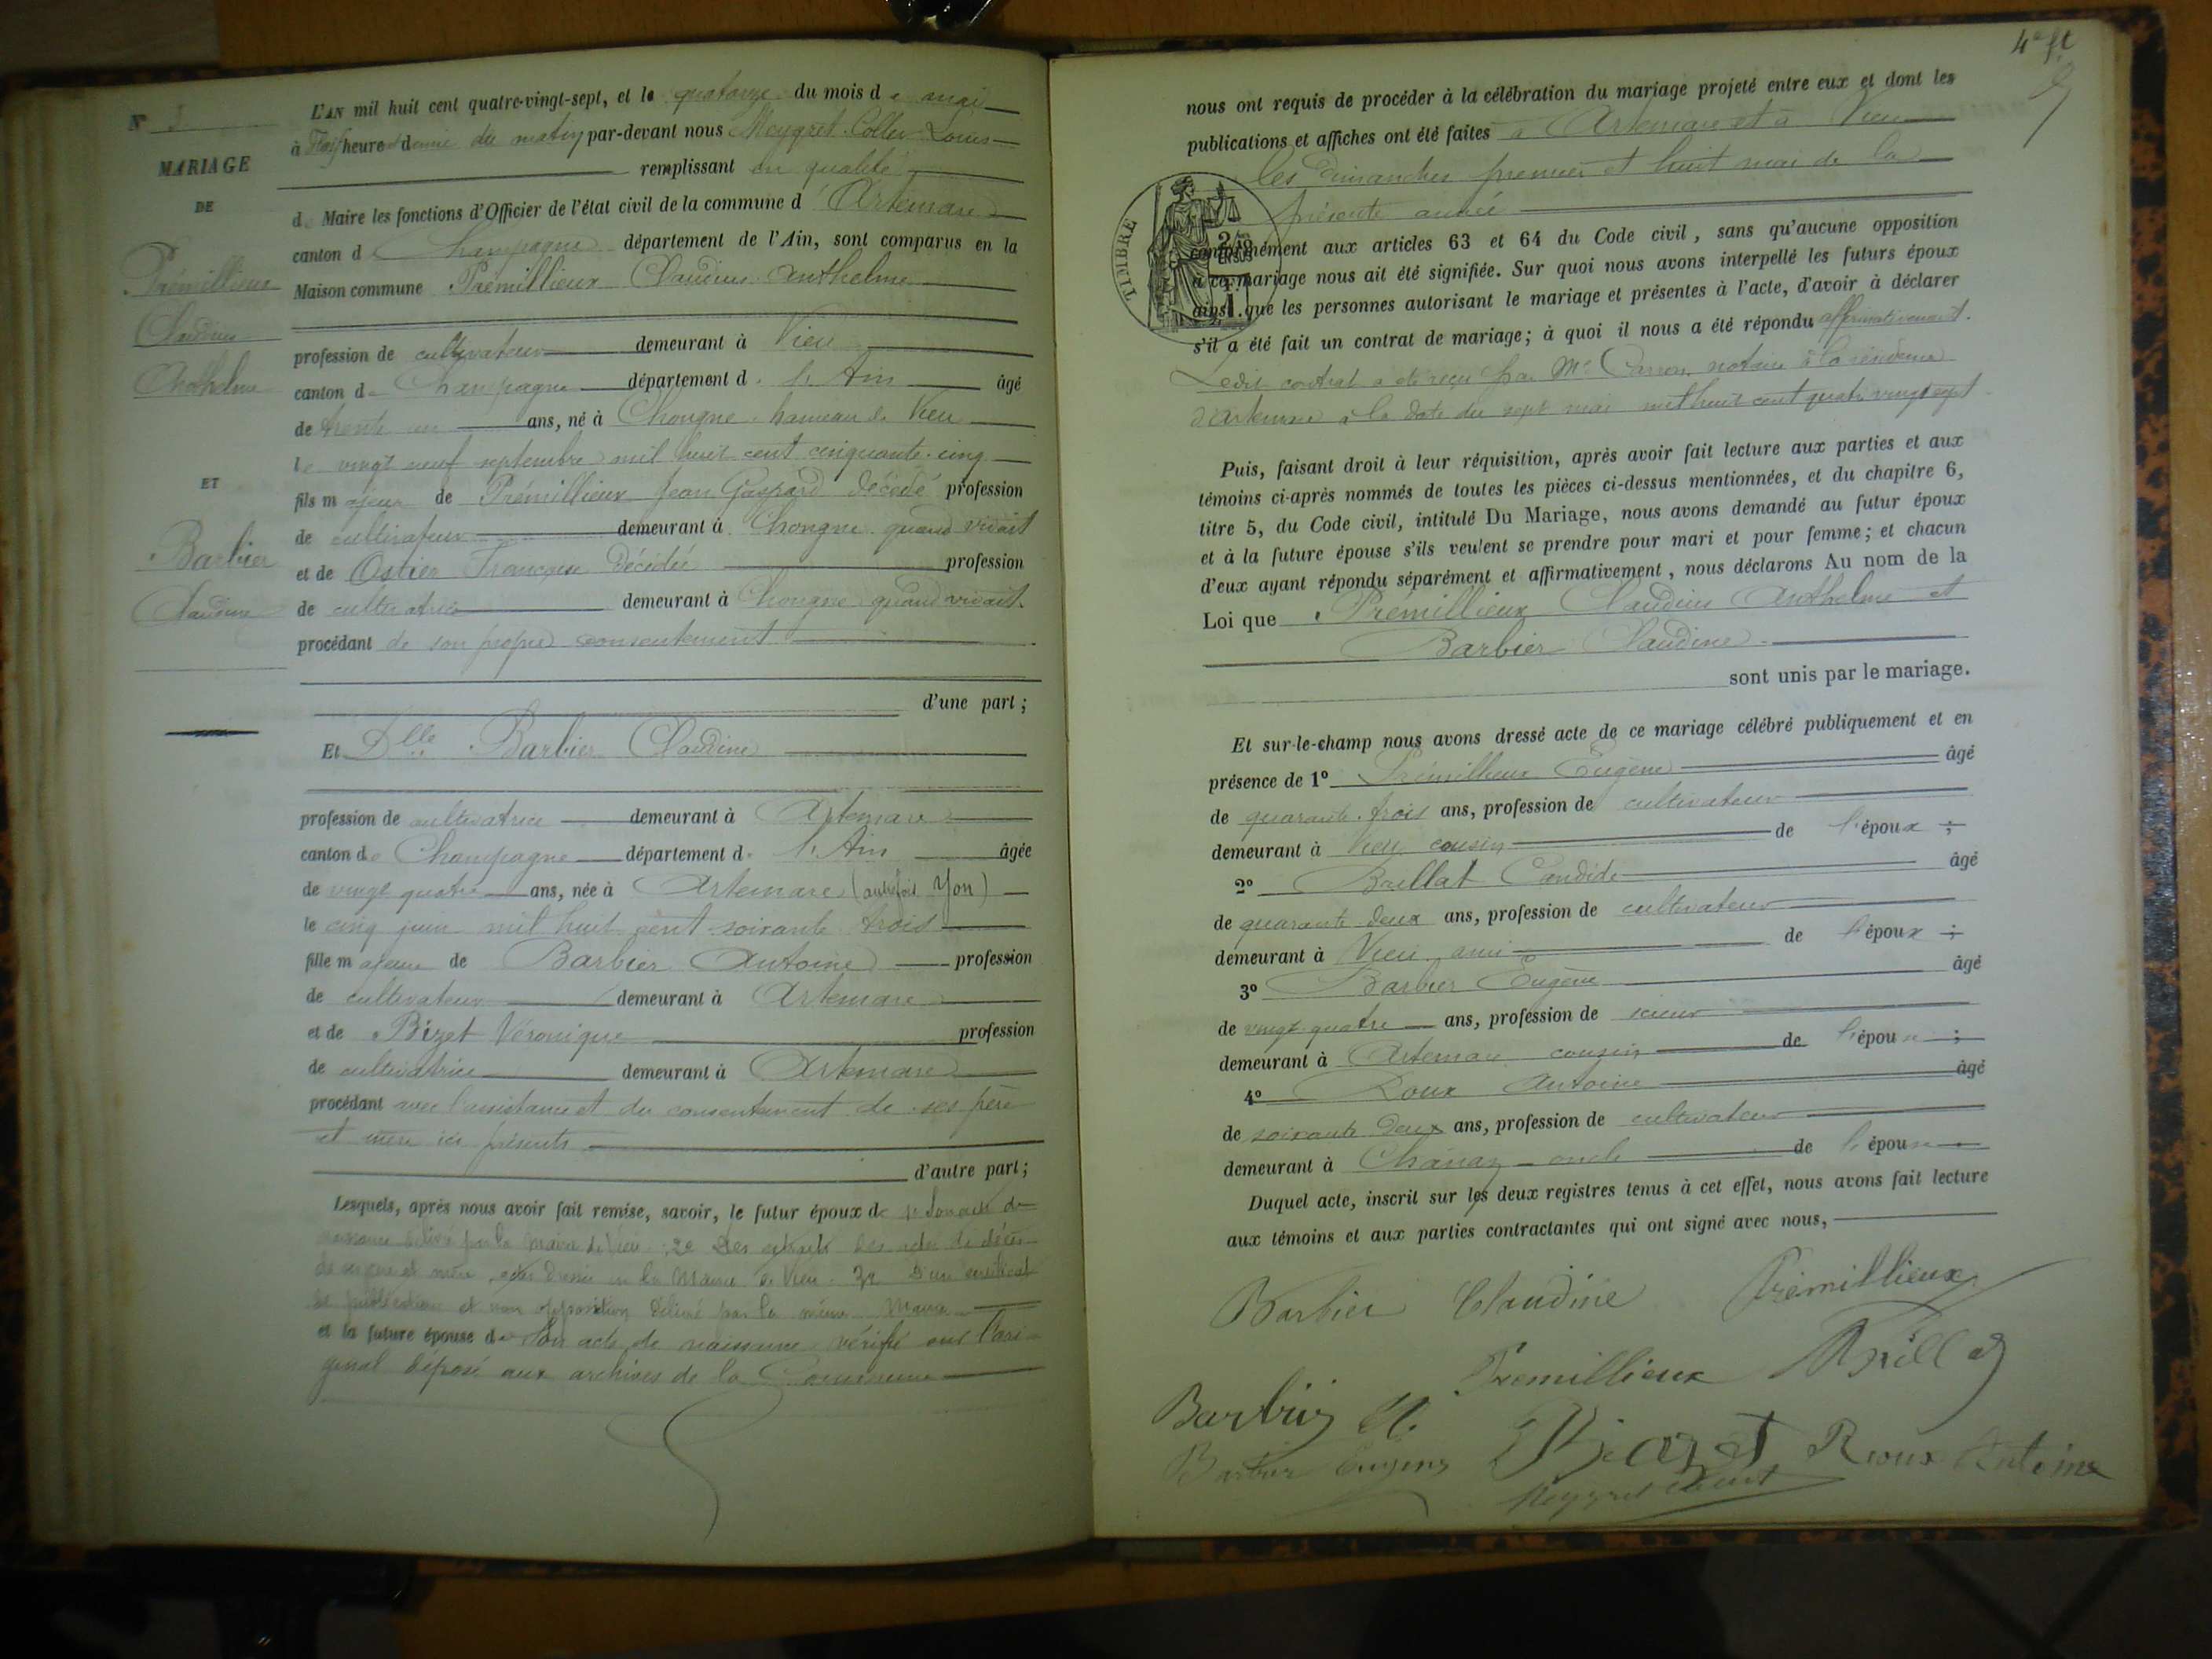 N° 3
MARIAGE
DE
Prémillieux
Claudius
Anthelme
ET
Barbier
Claudine
L'AN mil huit cent quatre-vingt-sept, et le quatorze du mois de mai
à heure demie du matin par-devant nous Meygret-Collet Louis
remplissant en qualité
de Maire les fonctions d'Officier de l'état civil de la commune d'Artemare
canton de Champagne département de l'Ain, sont comparus en la
Maison commune Prémillieux Claudius Anthelme
profession de cultivateur demeurant à Vieu
canton de Champagne département de l'Ain âgé
de trente un ans, né à Chongne hameau de Vieu
le vingt neuf septembre mil huit cent cinquante-cinq
fils majeur de Prémillieux Jean Gaspard décédé profession
de cultivateur demeurant à Chongne quand vivait
et de Ostier Françoise décédée profession
de cultivatrice demeurant à Chongne quand vivait
procédant de son propre consentement
d'une part ;
Et Dlle Barbier Claudine
profession de cultivatrice demeurant à Artemare
canton de Champagne département de l'Ain âgée
de vingt quatre ans, née à Artemare (autrefois Yon)
le cinq juin mil huit cent soixante trois
fille majeure de Barbier Antoine profession
de cultivateur demeurant à Artemare
et de Bizet Véronique profession
de cultivatrice demeurant à Artemare
procédant avec l'assistance et du consentement de ses père
et mère ici présents
d'autre part ;
Lesquels, après nous avoir fait remise, savoir, le futur époux de 1° son acte de
naissance délivré par la Mairie de Vieu 2° des extraits des actes de décès
de ses père et mère la Mairie de Vieu 3° d'un certificat
de publication et non opposition délivré par la même Mairie
et la future épouse de Son acte de naissance vérifié sur l'ori-
ginal déposé aux archives de la Commune
4e ft
nous ont requis de procéder à la célébration du mariage projeté entre eux et dont les
publications et affiches ont été faites à Artemare et à Vieu
les dimanches premier et huit mai de la
présente année
TIMBRE
conformément aux articles 63 et 64 du Code civil, sans qu'aucune opposition
à ce mariage nous ait été signifiée. Sur quoi nous avons interpellé les futurs époux
ainsi que les personnes autorisant le mariage et présentes à l'acte, d'avoir à déclarer
s'il a été fait un contrat de mariage ; à quoi il nous a été répondu affirmativement.
Ledit contrat a été reçu par Me Carron notaire à la résidence
d'Artemare à la date du sept mai mil huit cent quatre vingt sept
Puis, faisant droit à leur réquisition, après avoir fait lecture aux parties et aux
témoins ci-après nommés de toutes les pièces ci-dessus mentionnées, et du chapitre 6,
titre 5, du Code civil, intitulé Du Mariage, nous avons demandé au futur époux
et à la future épouse s'ils veulent se prendre pour mari et pour femme ; et chacun
d'eux ayant répondu séparément et affirmativement, nous déclarons Au nom de la
Loi que Prémillieux Claudius Anthelme et
Barbier Claudine
sont unis par le mariage.
Et sur-le-champ nous avons dressé acte de ce mariage célébré publiquement et en
présence de 1° Prémillieux Eugène âgé
de quarante-trois ans, profession de cultivateur
demeurant à Vieu cousin de l'époux ;
2° Brillat Candide âgé
de quarante deux ans, profession de cultivateur
demeurant à Vieu ami de l'époux ;
3° Barbier Eugène âgé
de vingt quatre ans, profession de scieur
demeurant à Artemare cousin de l'épouse ;
4° Roux Antoine âgé
de soixante deux ans, profession de cultivateur
demeurant à Chanaz oncle de l'épouse
Duquel acte, inscrit sur les deux registres tenus à cet effet, nous avons fait lecture
aux témoins et aux parties contractantes qui ont signé avec nous,
Barbier Claudine Prémillieux
Premillieux Brillat
Barbier
Barbier Eugène Bizet Roux Antoine
Meygret Collet